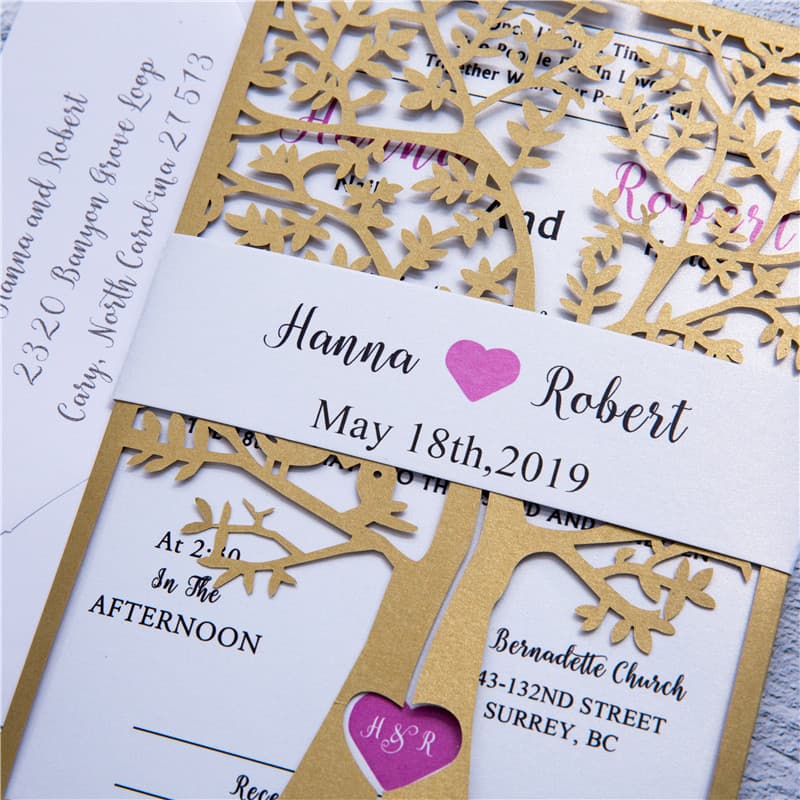 Hanna and Robert
2320 Banyon Grove Loop
Cary, North Carolina 27513
Once Time
People In Love
Together With Our
Hanna
Robert
And
Hanna Robert
May 18th,2019
At 2:30
In The
AFTERNOON
Bernadette Church
43-132ND STREET
SURREY, BC
H & R